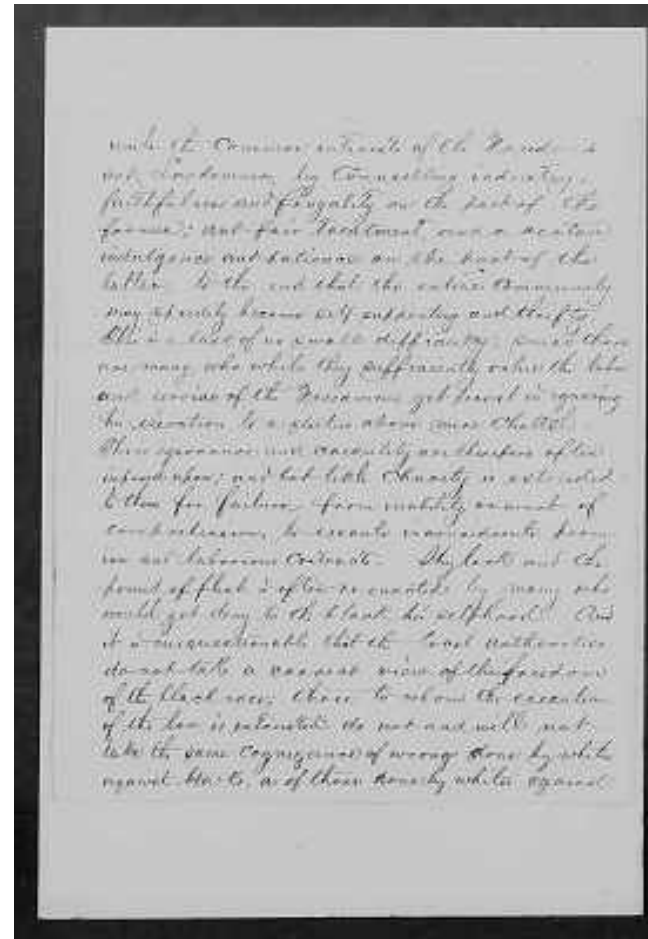 unite the Common interests of the Freedmen &
not Landowners, by Counselling industry,
faithfulness and frugality on the part of the
former; and fair treatment, and a certain
indulgence and patience on the part of the
latter. To the end that the entire Community
may speedily become self supporting and thrifty.
This is a task of no small difficulty. Since there
are many who while they sufficiently value the labor
and services of the Freedmen yet persist in ignoring
his elevation to a status above mere Chattel.
Their ignorance and credulity are therefore often
imposed upon; and but little Charity is extended
to them for failure, from inability or want of
comprehension, to execute
and laborious Contracts. Shylock and the
pound of flesh is often re-enacted by many who
would yet deny to the black his selfhood. And
it is unquestionable that the local authorities
do not take a correct view of the freedom
of the black race, those to whom the execution
of the law is entrusted do not and will not
take the same Cognizance of wrongs done by whites
against blacks, as of those done by whites against